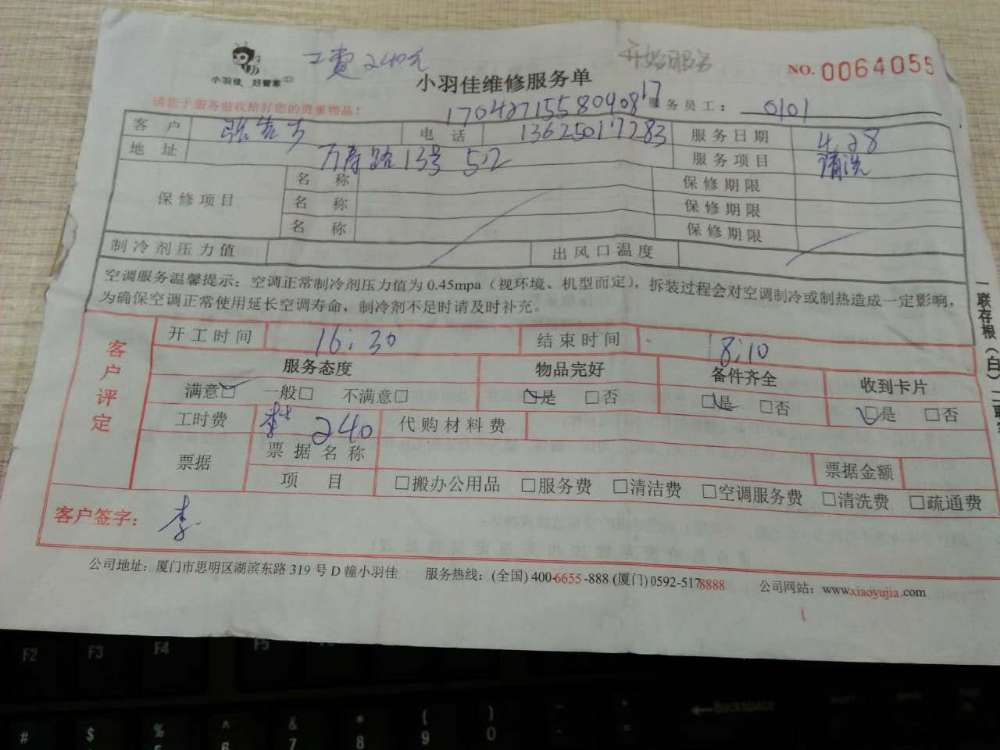 工费240元 开始服务
小羽佳 好管家
小羽佳维修服务单 NO. 0064055
1704271558090817 服务员工: 0101
客户 电话 13625017283 服务日期 4.28
地址 万寿路13号 502 服务项目 清洗
保修项目 名称 保修期限
名称 保修期限
名称 保修期限
制冷剂压力值 出风口温度
空调服务温馨提示:空调正常制冷剂压力值为0.45mpa(视环境、机型而定),拆装过程会对空调制冷或制热造成一定影响,
为确保空调正常使用延长空调寿命,制冷剂不足时请及时补充。
客户评定
开工时间 16:30 结束时间 18:10
服务态度 物品完好 备件齐全 收到卡片
满意☑ 一般□ 不满意□ ☑是 □否 ☑是 □否 ☑是 □否
工时费 240 代购材料费
票据 票据名称 票据金额
项目 □搬办公用品 □服务费 □清洁费 □空调服务费 □清洗费 □疏通费
客户签字: 李
公司地址:厦门市思明区湖滨东路319号D幢小羽佳 服务热线:(全国)400-6655-888(厦门)0592-5178888 公司网站:www.xiaoyujia.com
一联存根(白)
F2 F3 F4 F5
Backspace
# $ % ^ & * ( )
5 6 7 8 9 0